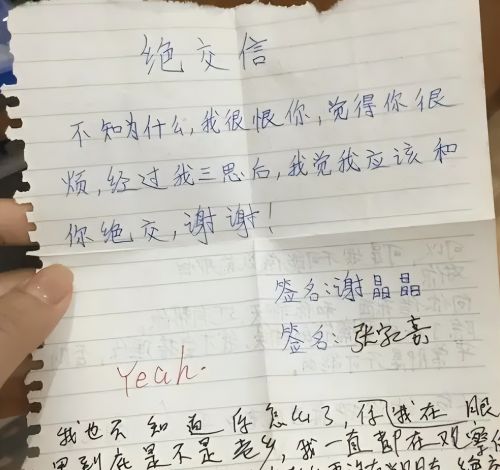 绝交信
不知为什么,我很恨你,觉得你很
烦,经过我三思后,我觉我应该和
你绝交,谢谢!
签名:谢晶晶
签名:张家嘉
Yeah.
我也不知道你怎么了,你我在眼
里到底是不是老乡,我一直都在观察你